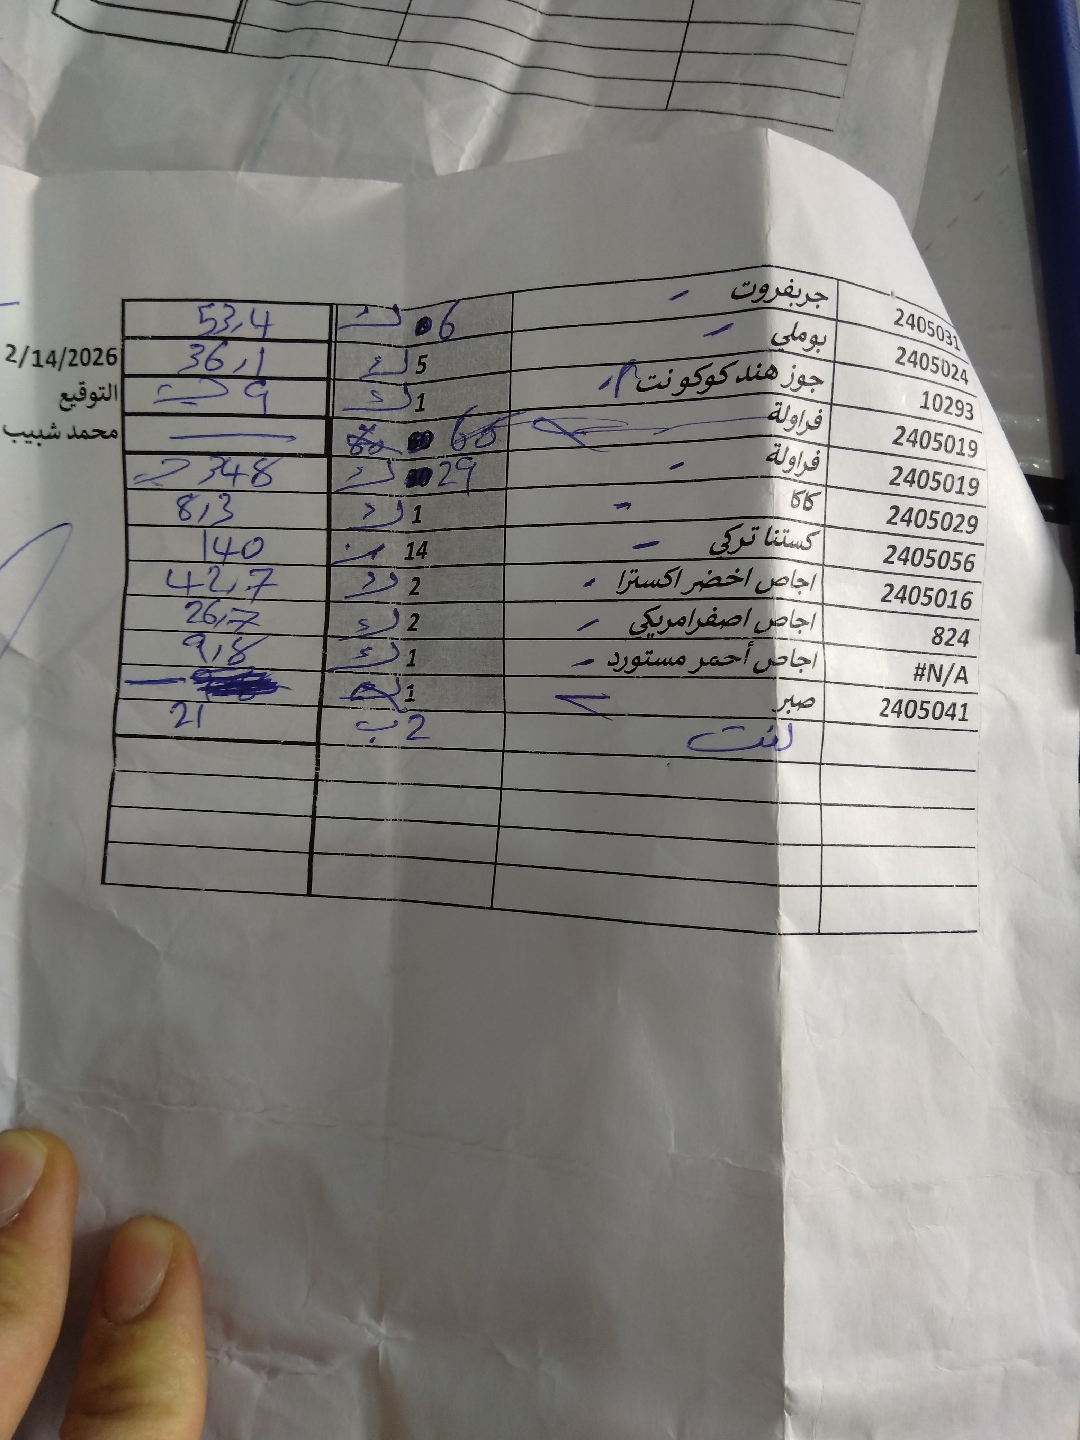 2405031 جريفروت - 6 ك 53,4
2405024 بوملي - 5 ك 36,1
10293 جوز هند كوكونت 1 ك 9
2405019 فراولة 60
2405019 فراولة - 29 ك 348
2405029 كاكا - 1 ك 8,3
2405056 كستنا تركي - 14 140
2405016 اجاص اخضر اكسترا - 2 ك 42,7
824 اجاص اصفرامريكي - 2 ك 26,7
#N/A اجاص أحمر مستورد - 1 ك 9,8
2405041 صبر 1
لفت 2 ب 21
2/14/2026
التوقيع
محمد شبيب